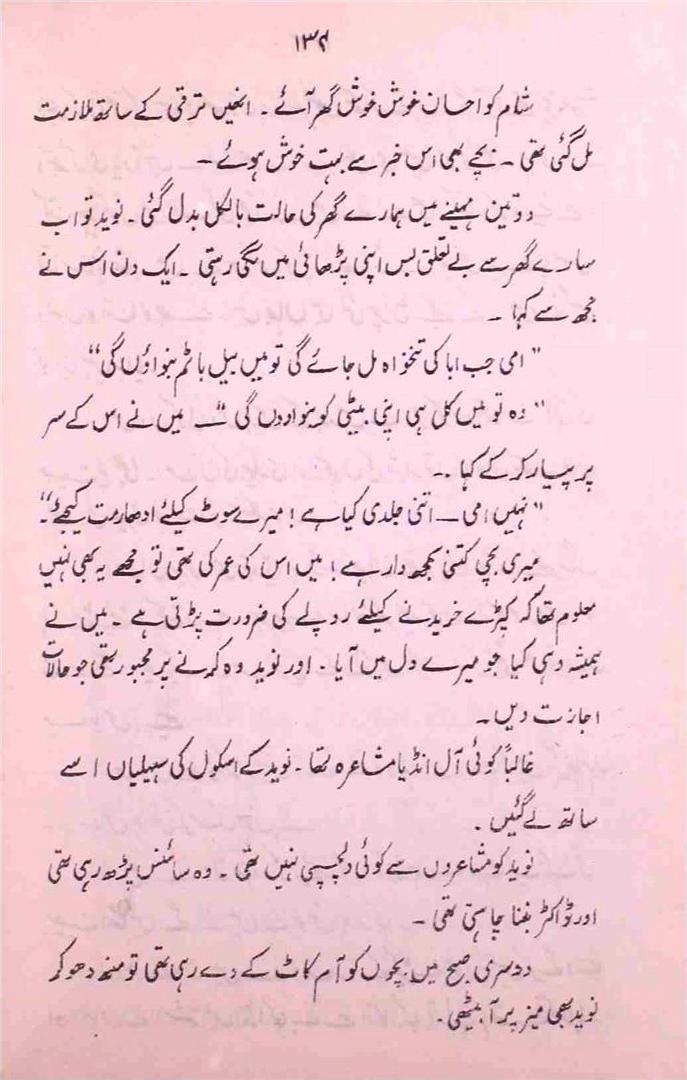 ۱۳۴
شام کو احسان خوش خوش گھر آئے ۔ انھیں ترقی کے ساتھ ملازمت
مل گئی تھی ۔ بچے بھی اس خبر سے بہت خوش ہوئے ۔
دو تین مہینے میں ہمارے گھر کی حالت بالکل بدل گئی ۔ نوید تو اب
سارے گھر سے بے تعلق بس اپنی پڑھائی میں لگی رہتی ۔ ایک دن اس نے
مجھ سے کہا ۔
" امی جب ابا کی تنخواہ مل جائے گی تو میں بیل باٹم بنواؤں گی "
" وہ تو میں کل ہی اپنی بیٹی کو بنوا دوں گی " ــ میں نے اس کے سر
پر پیار کر کے کہا ۔
" نہیں امی ــ اتنی جلدی کیا ہے ! میرے سوٹ کیلئے ادھار مت کیجئے "۔
میری بچی کتنی سمجھ دار ہے ! میں اس کی عمر کی تھی تو مجھے یہ بھی نہیں
معلوم تھا کہ کپڑے خریدنے کیلئے روپے کی ضرورت پڑتی ہے ۔ میں نے
ہمیشہ وہی کیا جو میرے دل میں آیا ۔ اور نوید وہ کرنے پر مجبور تھی جو حالات
اجازت دیں ۔
غالباً کوئی آل انڈیا مشاعرہ تھا ۔ نوید کے اسکول کی سہیلیاں اسے
ساتھ لے گئیں ۔
نوید کو مشاعروں سے کوئی دلچسپی نہیں تھی ۔ وہ سائنس پڑھ رہی تھی
اور ڈاکٹر بننا چاہتی تھی ۔
دوسری صبح میں بچوں کو آم کاٹ کے دے رہی تھی تو منھ دھو کر
نوید بھی میز پر آ بیٹھی ۔